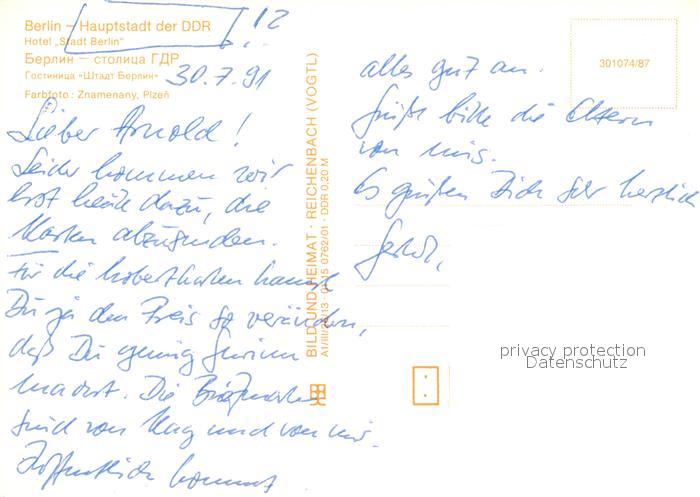 Berlin – Hauptstadt der DDR !?
Hotel „Stadt Berlin“
Берлин – столица ГДР
Гостиница «Штадт Берлин»
Farbfoto: Znamenany, Plzeň
30.7.91
Lieber Arnold!
Leider kommen wir
erst heute dazu, die
Karten abzusenden.
Für die kannst
Du ja den Preis so verändern,
daß Du genug Gewinn
machst. Die Briefmarken
sind von und von mir.
Hoffentlich kommt
alles gut an.
Grüße bitte die Eltern
von mir.
Es grüßen Dich sehr herzlich
BILD UND HEIMAT · REICHENBACH (VOGTL)
DDR 0,20 M
301074/87
privacy protection
Datenschutz